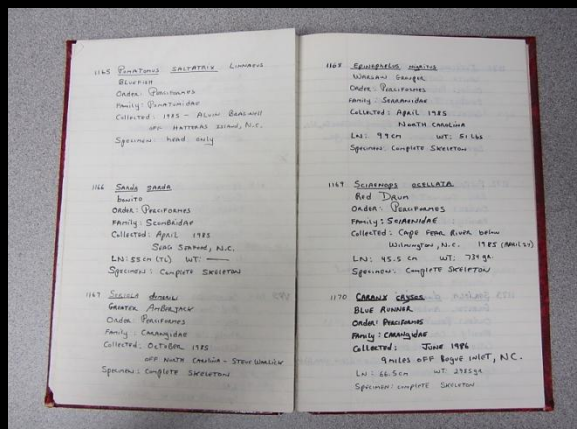 1165 Pomatomus saltatrix Linnaeus
Bluefish
Order: Perciformes
Family: Pomatomidae
Collected: 1985 - Alvin
off Hatteras Island, N.C.
Specimen: head only
1166 Sarda sarda
Bonito
Order: Perciformes
Family: Scombridae
Collected: April 1985
N.C.
LN: 55cm (TL) WT: —
Specimen: Complete Skeleton
1167 Seriola dumerili
Greater Amberjack
Order: Perciformes
Family: Carangidae
Collected: October 1985
off North Carolina - Steve
Specimen: Complete Skeleton
1168 Epinephelus
Warsaw Grouper
Order: Perciformes
Family: Serranidae
Collected: April 1985
North Carolina
LN: 99cm WT: 51 lbs
Specimen: Complete Skeleton
1169 Sciaenops ocellata
Red Drum
Order: Perciformes
Family: Sciaenidae
Collected: Cape Fear River below
Wilmington, N.C. 1985
LN: 45.5 cm WT:
Specimen: Complete Skeleton
1170 Caranx crysos
Blue Runner
Order: Perciformes
Family: Carangidae
Collected: June 1986
9 miles off Bogue Inlet, N.C.
LN: 66.5cm WT: 2985gr.
Specimen: Complete Skeleton